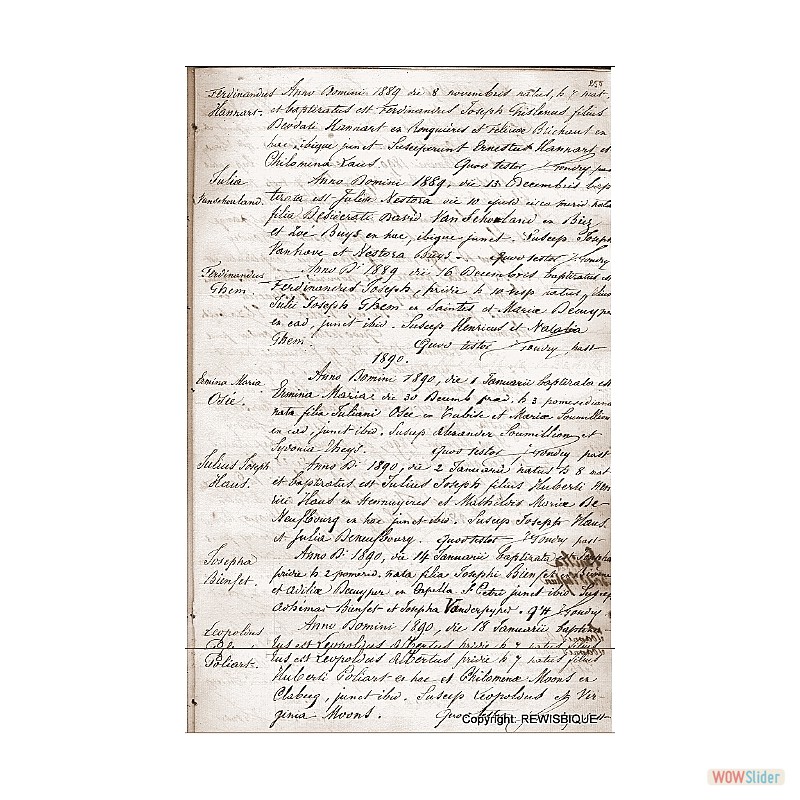 255
Ferdinandus Hannart.
Anno Domini 1889 die 8 novembris natus, h. 7 mat.
et baptizatus est Ferdinandus Joseph Ghislenus filius
Deodati Hannart ex Ronquières et Feliciae Brichaut ex
hac, ibique junct. Susceperunt Ernestus Hannart et
Philomina Laus. Quos testor J. Tondry, past
Julia Vanschouland.
Anno Domini 1889, die 15 Decembris bap
tizata est Julia Nestora die 10 ejusd
filia Desiderati David VanSchouland ex
et Zoé Buys ex hac, ibique junct. Suscep. Joseph
Vanhove et Nestora Buys. Quos testor J. Tondry
Ferdinandus Ghem
Anno D. 1889 die 16 Decembris baptizatus est
Ferdinandus Joseph, pridie h. 10 natus, filius
Julii Joseph Ghem ex Saintes et Mariae
ex ead, junct ibid. Suscep Henricus et Natalia
Ghem. Quos testor J. Tondry, past
1890.
Ermina Maria Osée.
Anno Domini 1890, die 1 Januarii baptizata est
Ermina Maria, die 30 Decemb h. 3 pomeridiana
nata filia Juliani Osée ex Tubise et Mariae Soumillion
ex ead, junct ibid. Suscep Alexander Soumillion et
Sydonia Theys. Quos testor J. Tondry past
Julius Joseph Haus.
Anno D. 1890, die 2 Januarii natus h. 8 mat
et baptizatus est Julius Joseph filius Huberti Hen
rici Haus ex Hennuyères et Mathildis Mariae De-
Neufbourg ex hac junct ibid. Suscep Joseph Haus
et Julia Deneufbourg. Quos testor J. Tondry past
Josepha Bienfet.
Anno D. 1890, die 14 Januarii baptizata Josepha
pridie h. 2 pomerid. nata filia Josephi Bienfet
et Adiliae ex Capella St Petri junct ibid Suscep
Adhémar Bienfet et Josepha J. Tondry
Leopoldus De
Anno Domini 1890, die 18 Januarii baptiza
tus est Leopoldus Albertus pridie h. 7 natus filius
Poliart.
tus est Leopoldus Albertus pridie h. 7 natus filius
Huberti Poliart ex hac et Philominae Moons ex
Clabecq, junct ibid. Suscep Leopoldus et Vir-
ginia Moons. Quos testor
Copyright REWISBIQUE
WOWSlider